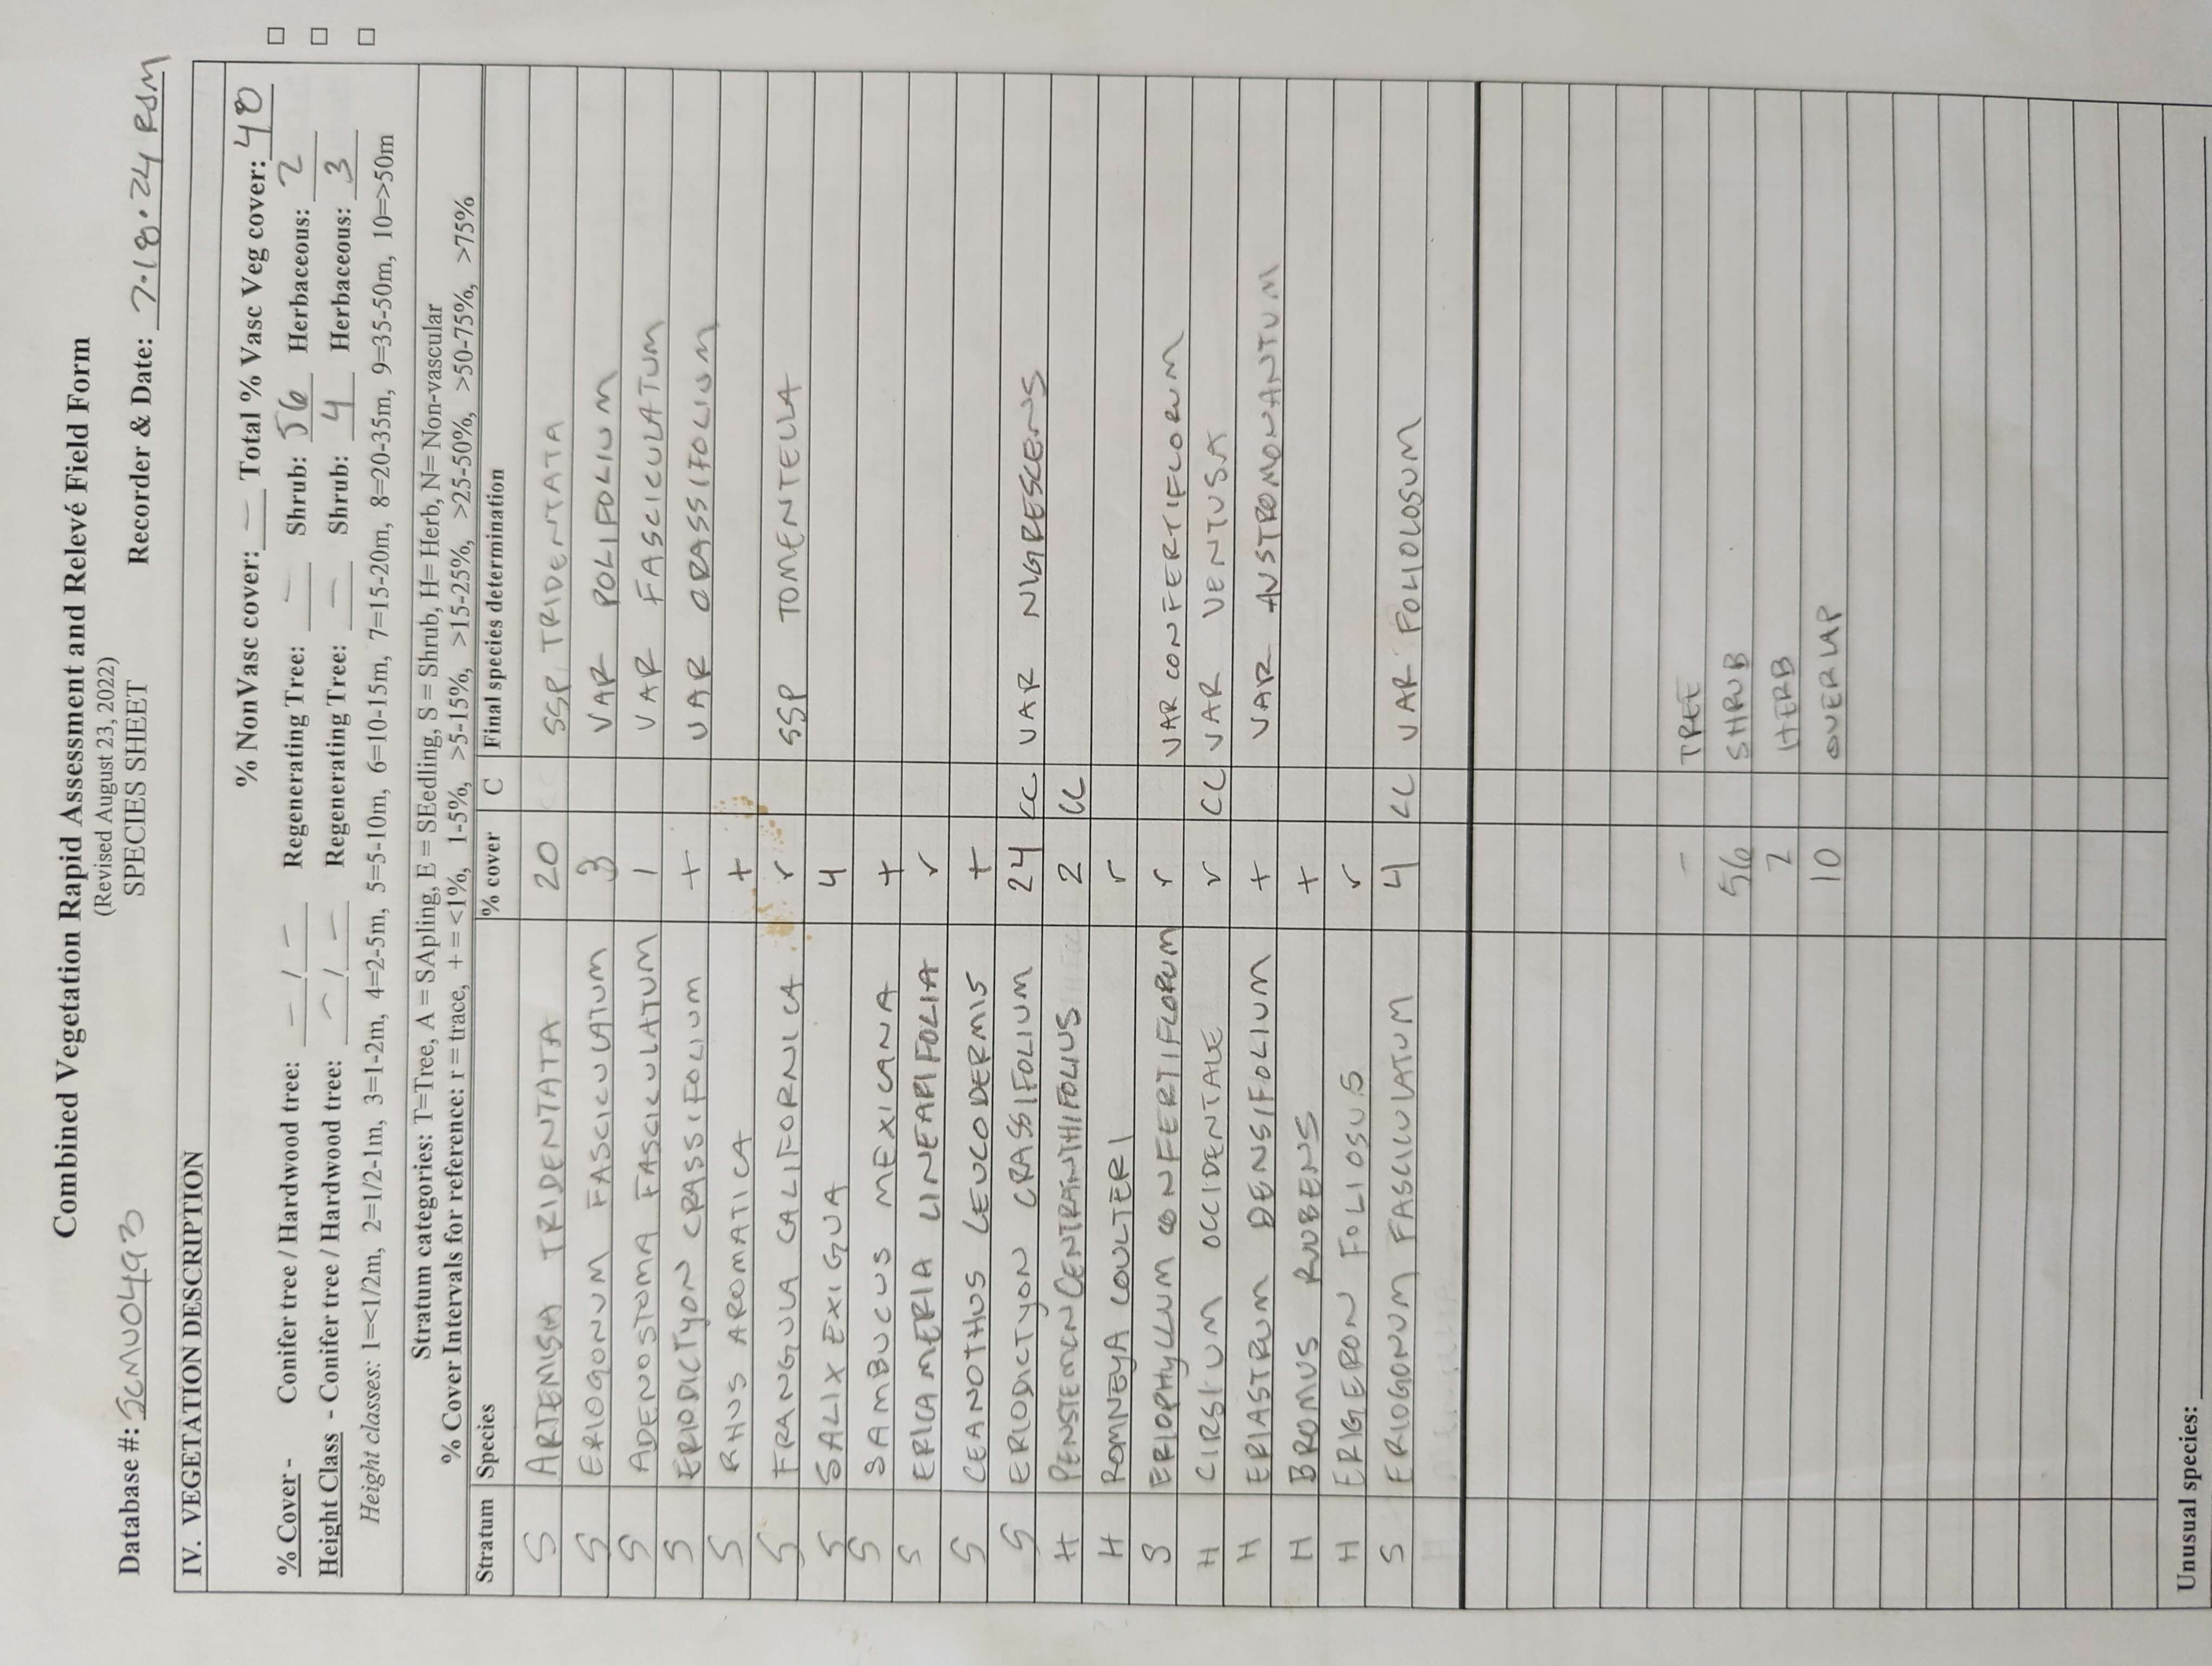 Combined Vegetation Rapid Assessment and Relevé Field Form
(Revised August 23, 2022)
SPECIES SHEET
Database #: SCMU0493 Recorder & Date: 7.18.24 RSM
IV. VEGETATION DESCRIPTION
% NonVasc cover: — Total % Vasc Veg cover: 48
% Cover - Conifer tree / Hardwood tree: — / — Regenerating Tree: — Shrub: 56 Herbaceous: 2
Height Class - Conifer tree / Hardwood tree: — / — Regenerating Tree: — Shrub: 4 Herbaceous: 3
Height classes: 1=<1/2m, 2=1/2-1m, 3=1-2m, 4=2-5m, 5=5-10m, 6=10-15m, 7=15-20m, 8=20-35m, 9=35-50m, 10=>50m
Stratum categories: T=Tree, A = SApling, E = SEedling, S = Shrub, H= Herb, N= Non-vascular
% Cover Intervals for reference: r = trace, + = <1%, 1-5%, >5-15%, >15-25%, >25-50%, >50-75%, >75%
Stratum Species % cover C Final species determination
S ARTEMISIA TRIDENTATA 20 SSP TRIDENTATA
S ERIOGONUM FASCICULATUM 3 VAR POLIFOLIUM
S ADENOSTOMA FASCICULATUM 1 VAR FASCICULATUM
S ERIODICTYON CRASSIFOLIUM + VAR CRASSIFOLIUM
S RHUS AROMATICA +
S FRANGULA CALIFORNICA r SSP TOMENTELLA
S SALIX EXIGUA 4
S SAMBUCUS MEXICANA +
S ERICAMERIA LINEARIFOLIA r
S CEANOTHUS LEUCODERMIS +
S ERIODICTYON CRASSIFOLIUM 24 CC VAR NIGRESCENS
H PENSTEMON CENTRANTHIFOLIUS 2 CC
H ROMNEYA COULTERI r
S ERIOPHYLLUM CONFERTIFLORUM r VAR CONFERTIFLORUM
H CIRSIUM OCCIDENTALE r CC VAR VENTUSA
H ERIASTRUM DENSIFOLIUM + VAR AUSTROMONANTUM
H BROMUS RUBENS +
H ERIGERON FOLIOSUS r
S ERIOGONUM FASCICULATUM 4 CC VAR FOLIOLOSUM
– TREE
56 SHRUB
2 HERB
10 OVERLAP
Unusual species: